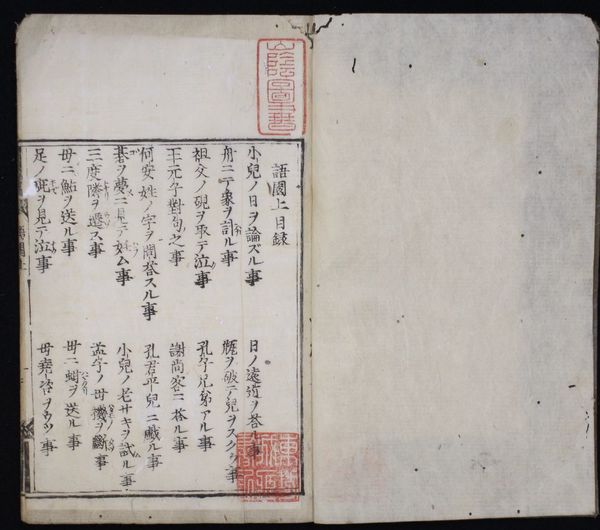 語園上目録
小兒ノ日ヲ論ズル事
日ノ遠近ヲ答ル事
舟ニテ象ヲ計ル事
甁ヲ破テ兒ヲスクウ事
祖父ノ硯ヲ取テ泣事
孔子兄弟アル事
王元子對句之事
謝尚客ニ答ル事
何安姓ノ字ヲ問答スル事
孔君平兒ニ戯ル事
碁ヲ夢ニ見テ姙ム事
小兒ノ老サキヲ試ル事
三度隣ヲ遷ス事
孟子ノ母機ヲ斷事
母ニ鮎ヲ送ル事
母ニ蚶ヲ送ル事
足ノ疵ヲ見テ泣事
母堯咨ヲウツ事